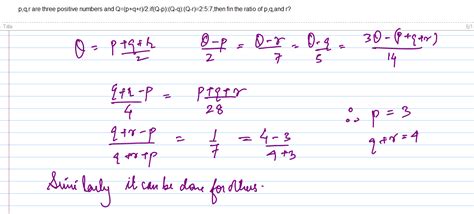 p,q,r are three positive numbers and Q=(p+q+r)/2;if(Q-p):(Q-q):(Q-r)=2:5:7,then fin the ratio of p,q,and r?
Title
6/1
Q = p+q+r/2 Q-p/2 = Q-r/7 = Q-q/5 = 3Q-(p+q+r)/14
q+r-p/4 = p+q+r/28
q+r-p/q+r+p = 1/7 = 4-3/4+3
∴ p = 3
q+r = 4
Similarly it can be done for others.